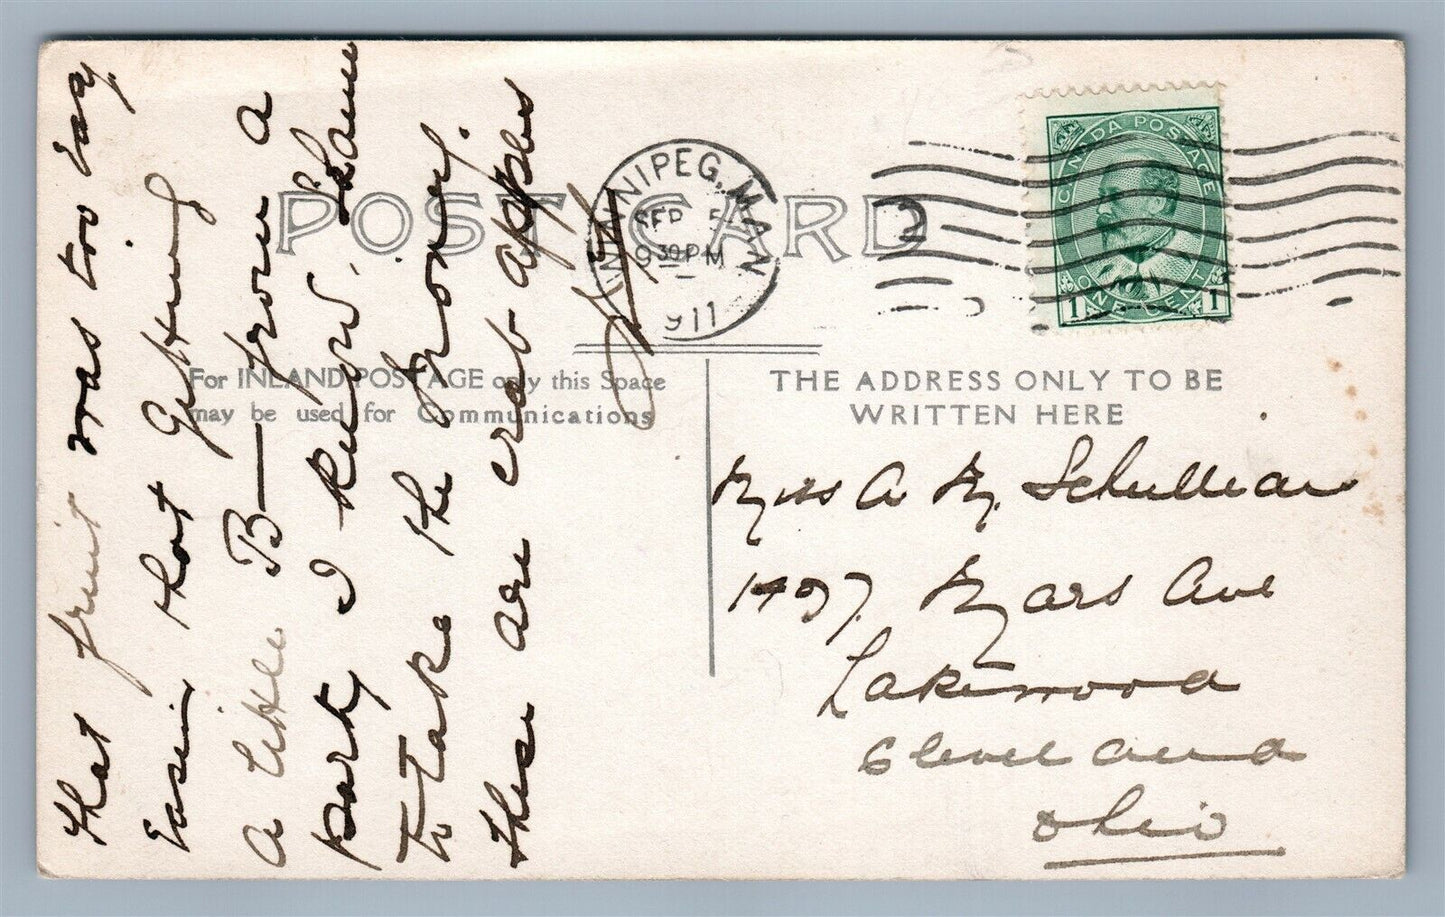 POST CARD
WINNIPEG, MAN
SEP 5
9 30 PM
1911
2
CANADA POSTAGE
ONE CENT
1 1
For INLAND POSTAGE only this Space
may be used for Communications
THE ADDRESS ONLY TO BE
WRITTEN HERE
that fruit was too easy
easier that Gettting
a little B— from a
party I know. Shame
to take the money.
these are crab apples
Miss A M. Schullian
1497 Mars Ave
Lakewood
Cleveland
Ohio